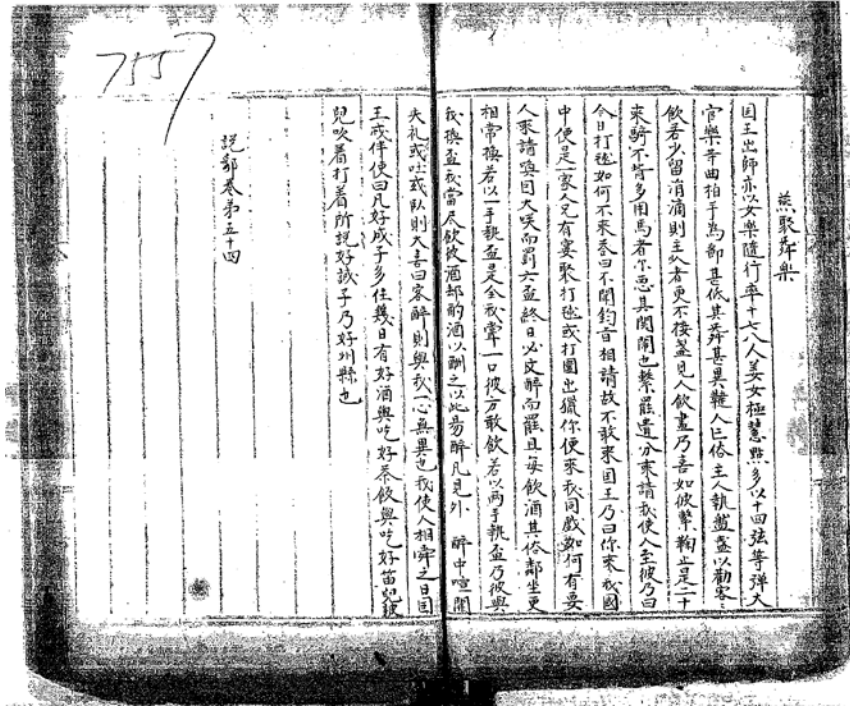 燕聚舜樂
国王出師亦以女樂隨行率十七八人美女極慧點多以十四弦等弹大
官樂等曲拍手為節甚低其舜甚異韃人之俗主人執盤盞以勸客〻
飲若少留涓滴則主人者更不接盞見人飲盡乃喜如彼擊鞠止是二十
來騎不肯多用馬者尔惡其関閙也擊罷遣介來請我使人至彼乃曰
今日打毬如何不來荅曰不聞鈞旨相請故不敢來国王乃曰你來我國
中便是一家人凡有宴聚打毬或打圍出獵你便來我同戲如何有要
人來請喚因大咲而罰六盃終日必大醉而罷且每飲酒其俗鄰坐更
相嘗換若以一手執盃是令我嘗一口彼方敢飲若以两手執盃乃彼與
我換盃我當尽飲彼酒却酌酒以酬之以此易醉凡見外 醉中喧閙
失礼或吐或臥則大喜曰客醉則與我一心無異也我使人相舜之日国
王戒伴使曰凡好城子多住幾日有好酒與吃好茶飯與吃好笛兒鼓
兒吹着打着所說好城子乃好州縣也
說郛卷第五十四
7557